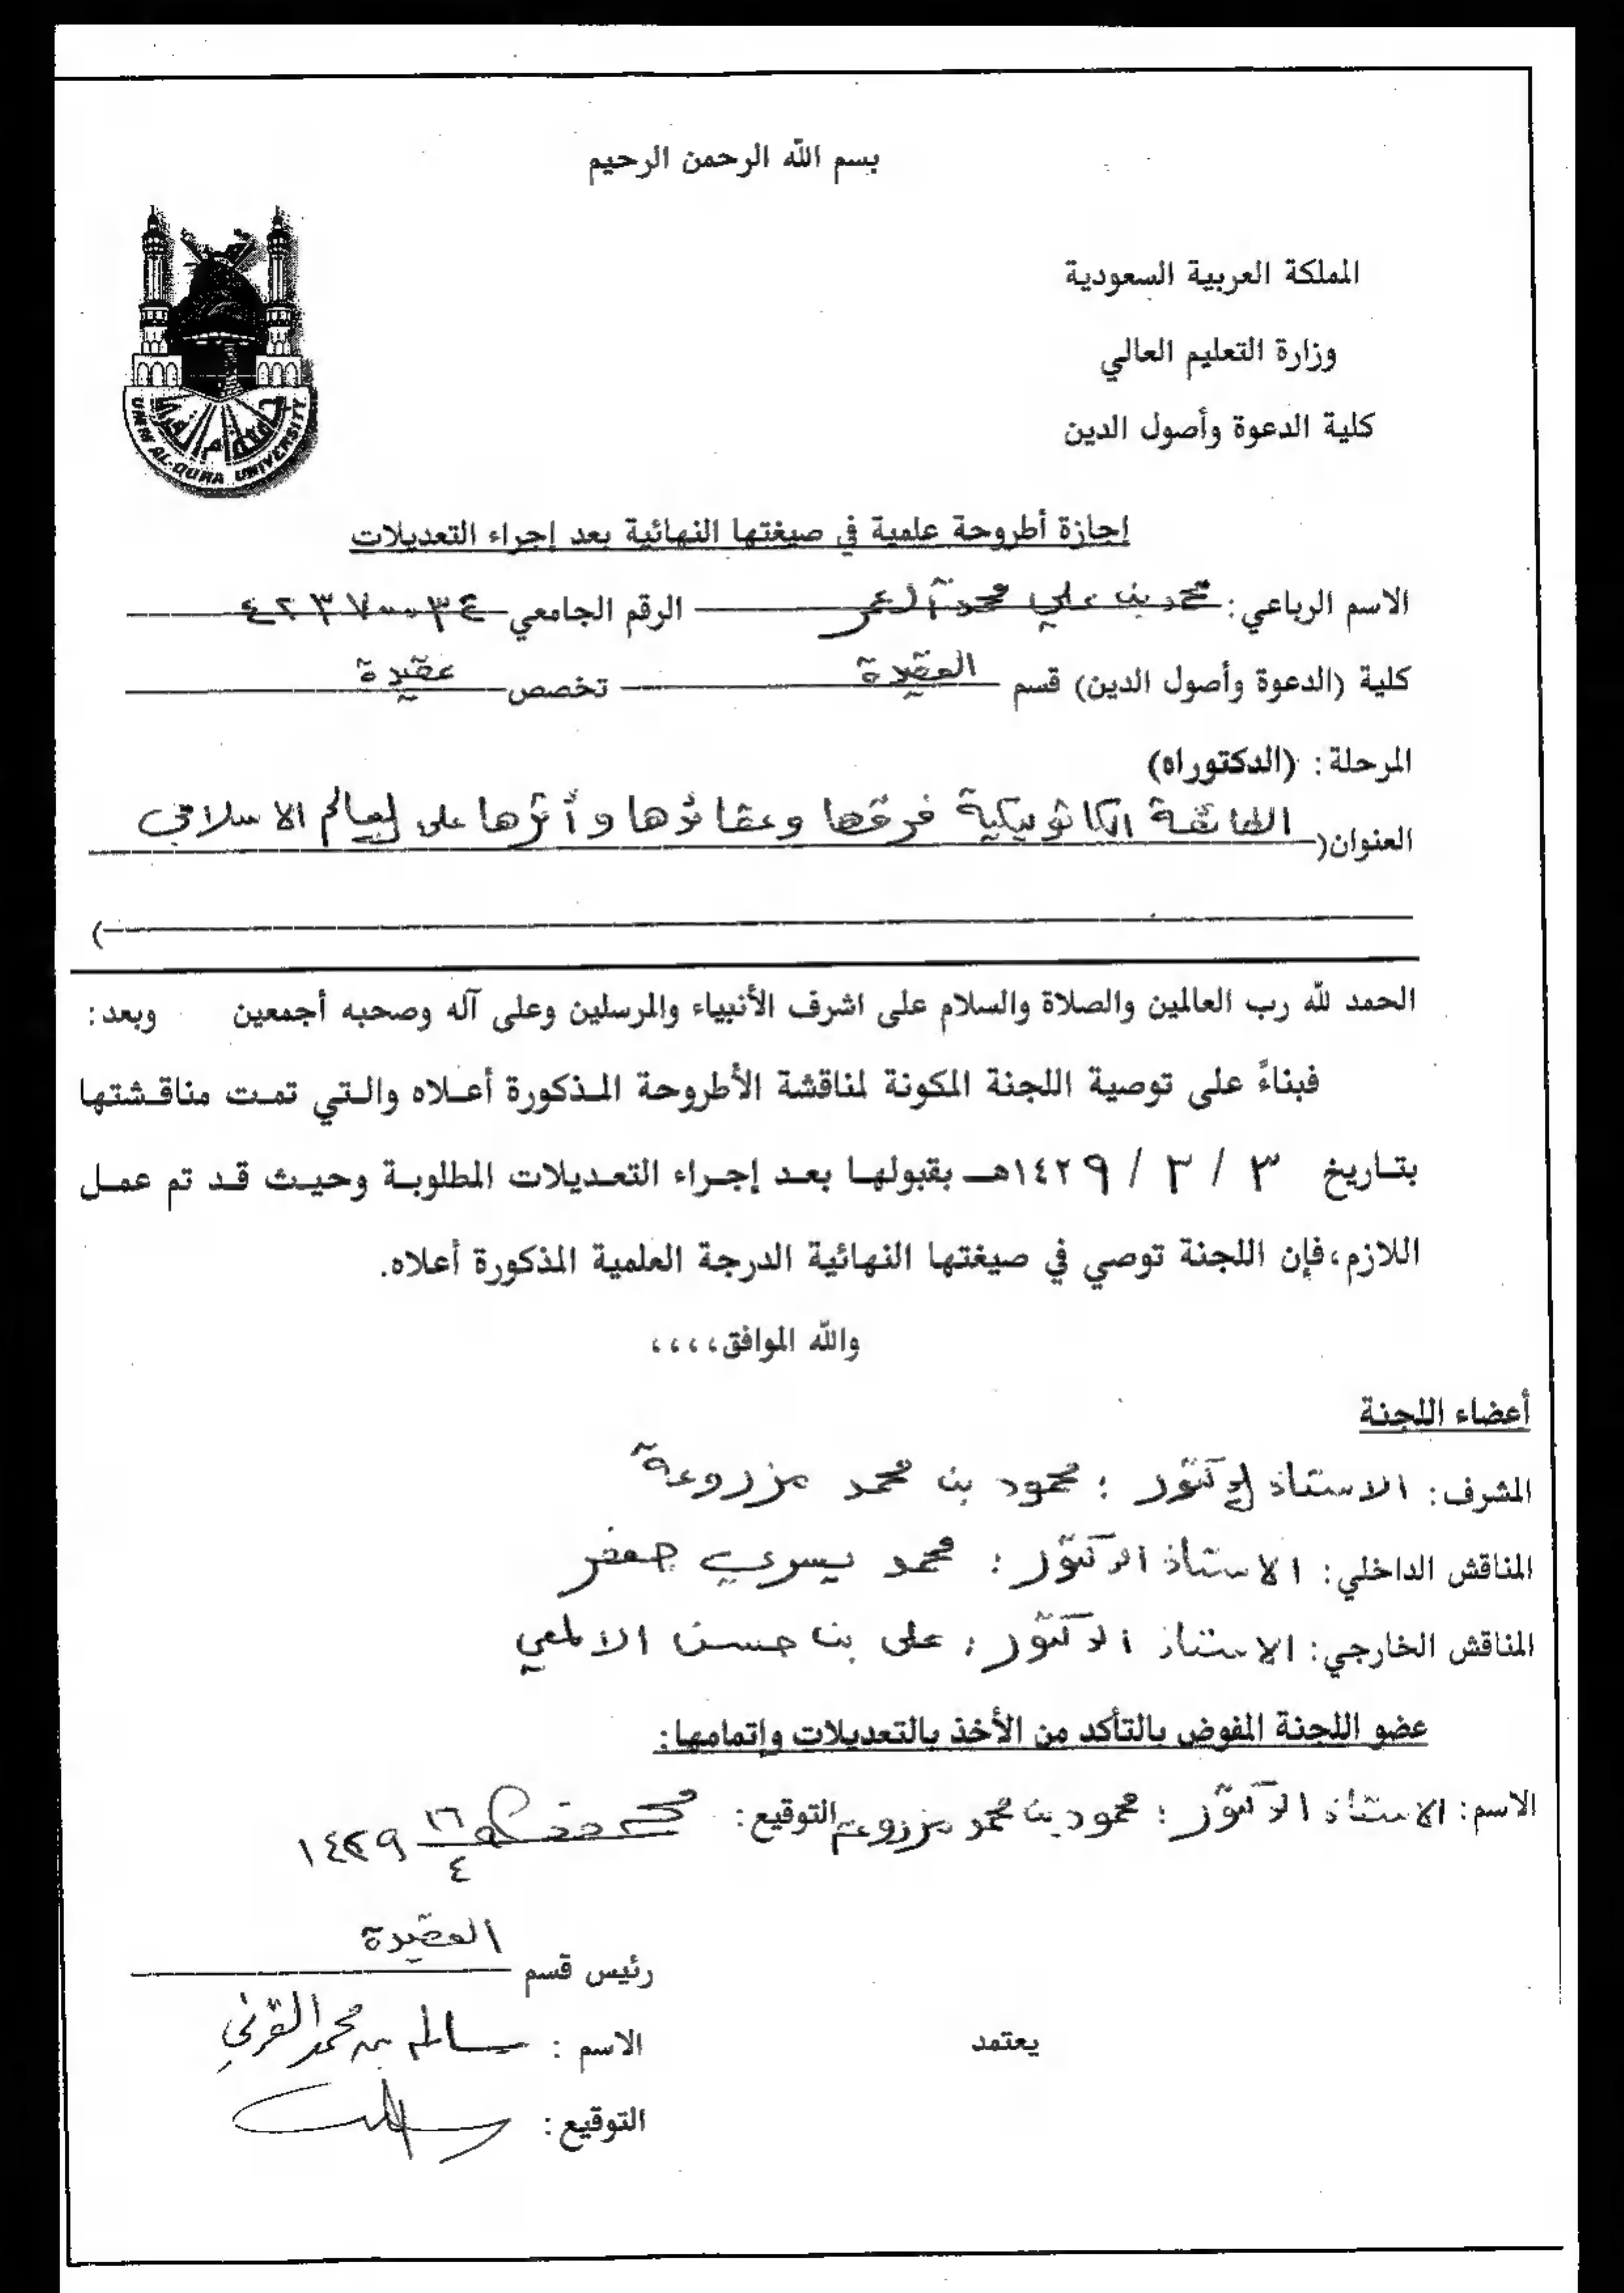 بسم الله الرحمن الرحيم
المملكة العربية السعودية
وزارة التعليم العالي
كلية الدعوة وأصول الدين
UMM AL-QURA UNIVERSITY
إجازة أطروحة علمية في صيغتها النهائية بعد إجراء التعديلات
الاسم الرباعي: محمد بن علي محمد آل عمر الرقم الجامعي ٤٢٣٧٠٠٣٤
كلية (الدعوة وأصول الدين) قسم العقيدة تخصص عقيدة
المرحلة: (الدكتوراه)
العنوان( الطائفة الكاثوليكية فرقها وعقائدها وأثرها على العالم الاسلامي
)
الحمد لله رب العالمين والصلاة والسلام على اشرف الأنبياء والمرسلين وعلى آله وصحبه أجمعين وبعد:
فبناءً على توصية اللجنة المكونة لمناقشة الأطروحة المذكورة أعلاه والتي تمت مناقشتها
بتاريخ ٣ / ٣ / ١٤٢٩هـ بقبولها بعد إجراء التعديلات المطلوبة وحيث قد تم عمل
اللازم،فإن اللجنة توصي في صيغتها النهائية الدرجة العلمية المذكورة أعلاه.
والله الموافق،،،،
أعضاء اللجنة
المشرف: الاستاذ الدكتور : محمود بن محمد مزروعة
المناقش الداخلي: الاستاذ الدكتور : محمد يسري جعفر
المناقش الخارجي: الاستاذ الدكتور : على بن حسن الالمعي
عضو اللجنة المفوض بالتأكد من الأخذ بالتعديلات وإتمامها:
الاسم: الاستاذ الدكتور : محمود بن محمد مزروعة التوقيع: ١٦/٤ ١٤٢٩
رئيس قسم العقيدة
يعتمد الاسم : سالم بن محمد القرني
التوقيع: